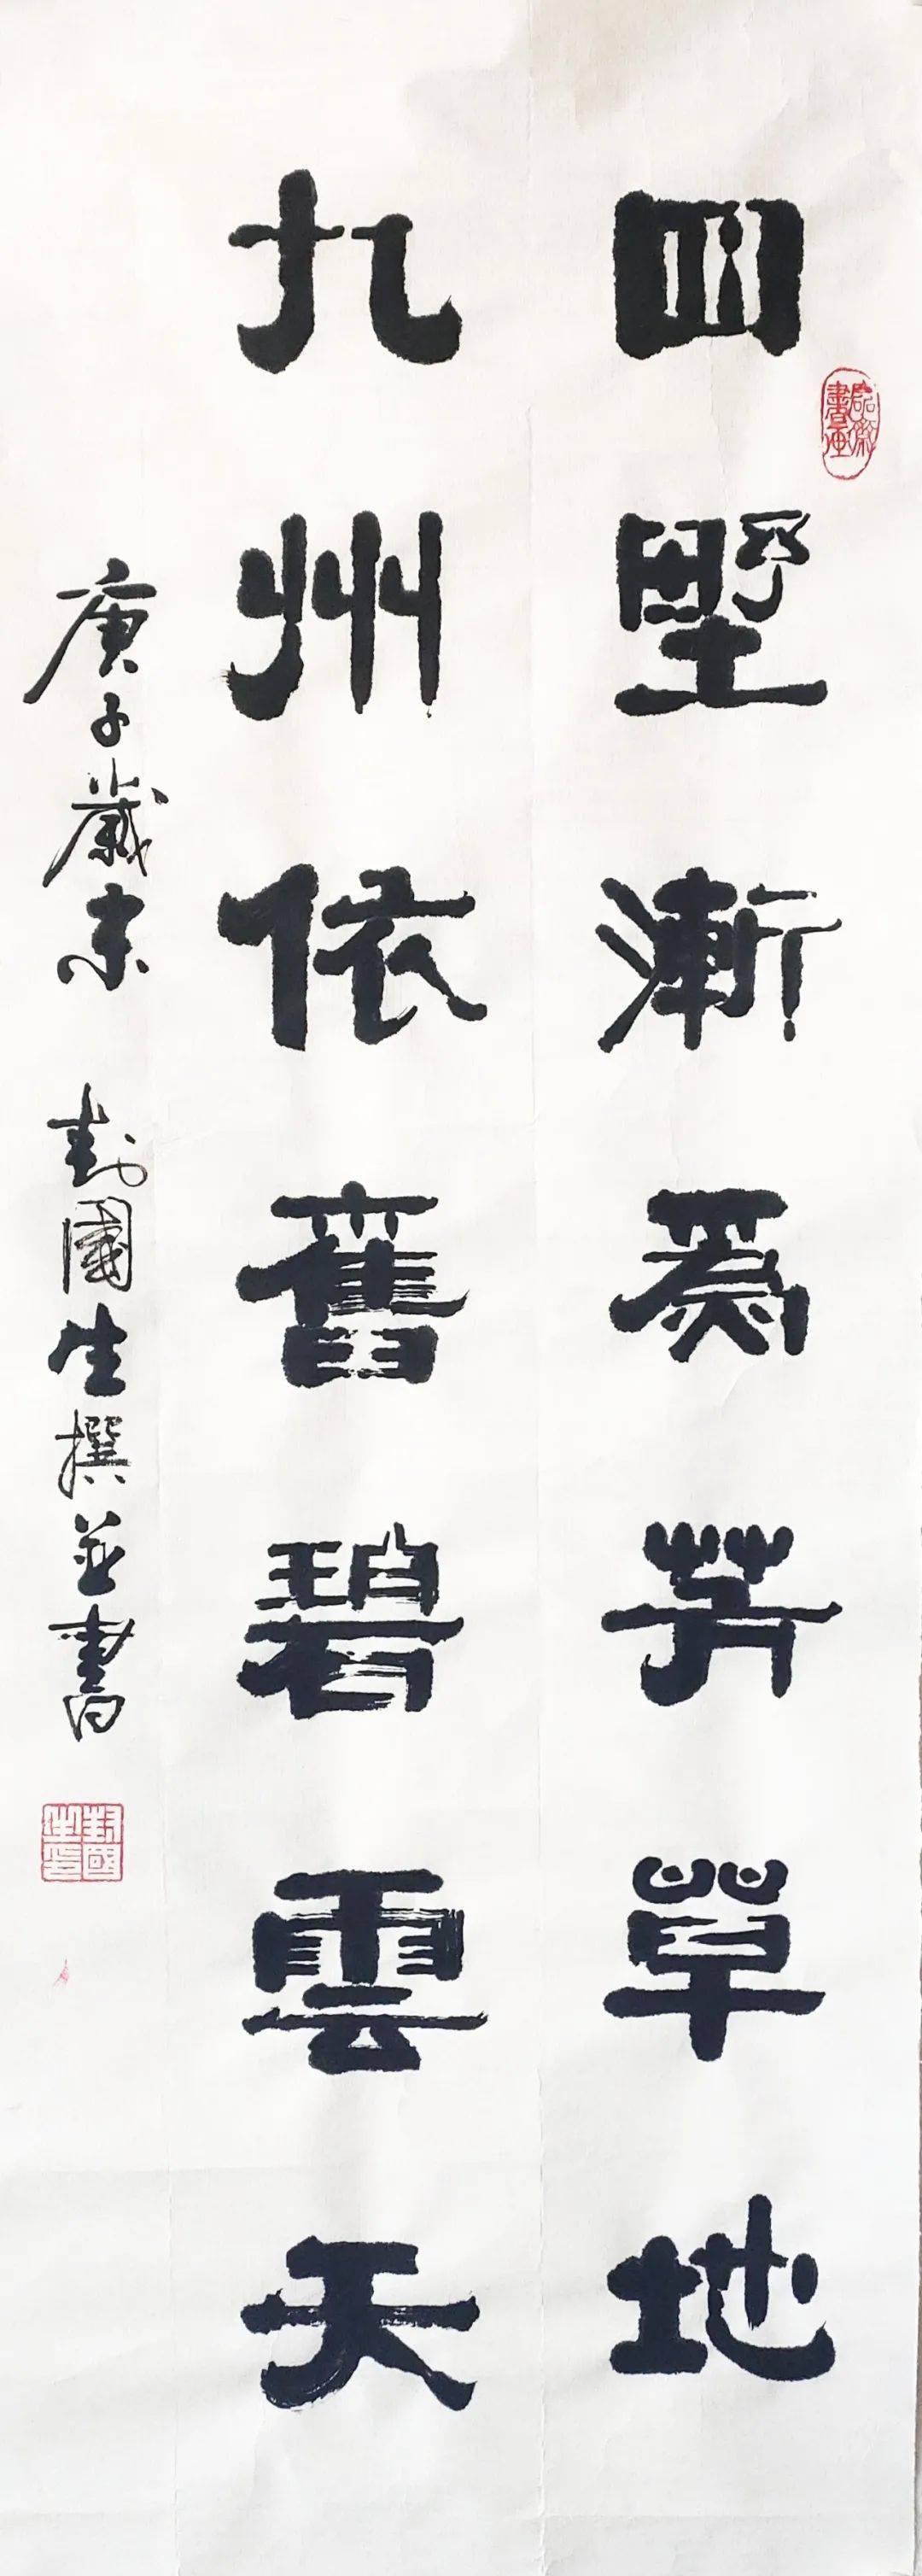 四野漸爲芳草地
九州依舊碧雲天
庚子歲末 封國生撰並書
封國生印